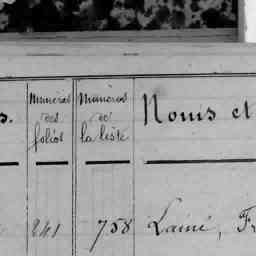 s. Numéros des folios Numéros de la liste Noms et
241 758 Lainé, Fr